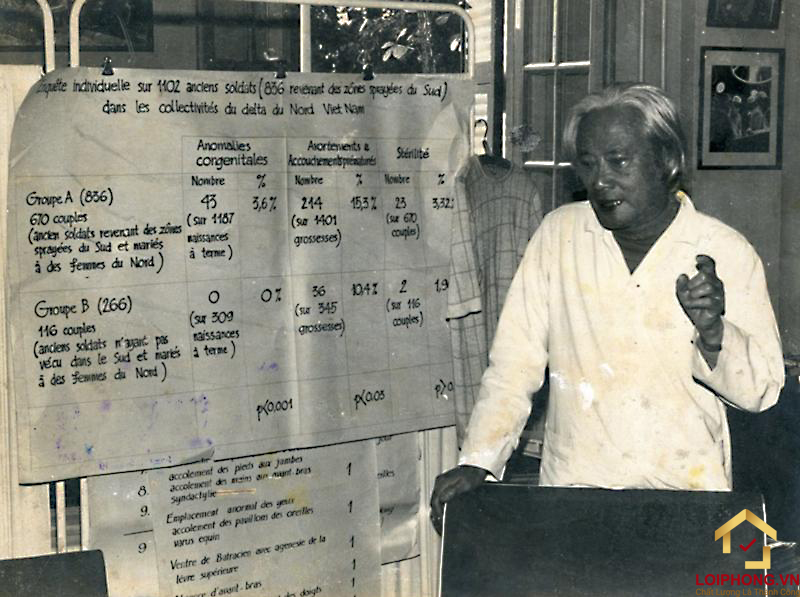 Enquête individuelle sur 1102 anciens soldats (836 revenant des zônes sprayées du Sud)
dans les collectivités du delta du Nord Viet Nam
Anomalies congenitales
Avortements & Accouchements prématurés
Stérilité
Nombre % Nombre % Nombre %
Groupe A (836) 43 3,6% 214 15,3% 23 3,32
670 couples (sur 1187 (sur 1401 (sur 670
(anciens soldats revenant des zônes naissances grossesses) couples)
sprayées du Sud et mariés à terme)
à des femmes du Nord)
Groupe B (266) 0 0% 36 10,4% 2 1,9
116 couples (sur 309 (sur 345 (sur 116
(anciens soldats n'ayant pas naissances grossesses) couples)
vécu dans le Sud et mariés à terme)
à des femmes du Nord)
p<0,001 p<0,03 p>0,
accolement des pieds aux jambes
8. accolement des mains aux avant-bras 1
syndactylie
9. Emplacement anormal des yeux 1
accolement des pavillons des oreilles
varus equin 1
9 Ventre de Batracien avec agenesie de la 1
lèvre supérieure 1
d'avant-bras 1
des doigts
LOIPHONG.VN
Chất Lượng Là Thành Công